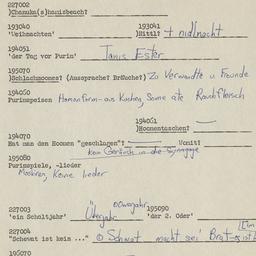 227002
)Chanuke(s)hanisbesch?
193040
'Weihnachten'
193041
)Nittl? + nidlnacht
194051
'der Tag vor Purim' Tanis Ester
195070
)Schlachmones? (Aussprache? Bräuche?) Zu Verwandte u Freunde
194050
Purimspeisen Hamanform - aus Kuchen, Some ate Rauchfleisch
194061
)Homentaschen?
194070
Hat man den Homen "geschlagen"? Womit?
kein Geräusch in die Synagoge
195080
Purimspiele, -lieder
Maskiren, Keine lieder
227003
'ein Schaltjahr' Überjahr
195090
'der 2. Oder'
227004
"Schewat ist kein ..." Schwat macht sei Brat
195070